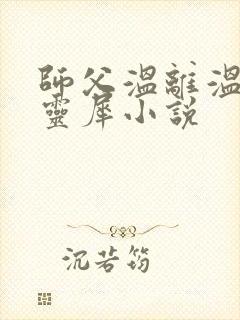 師父溫離溫
靈犀小說
沉若筠